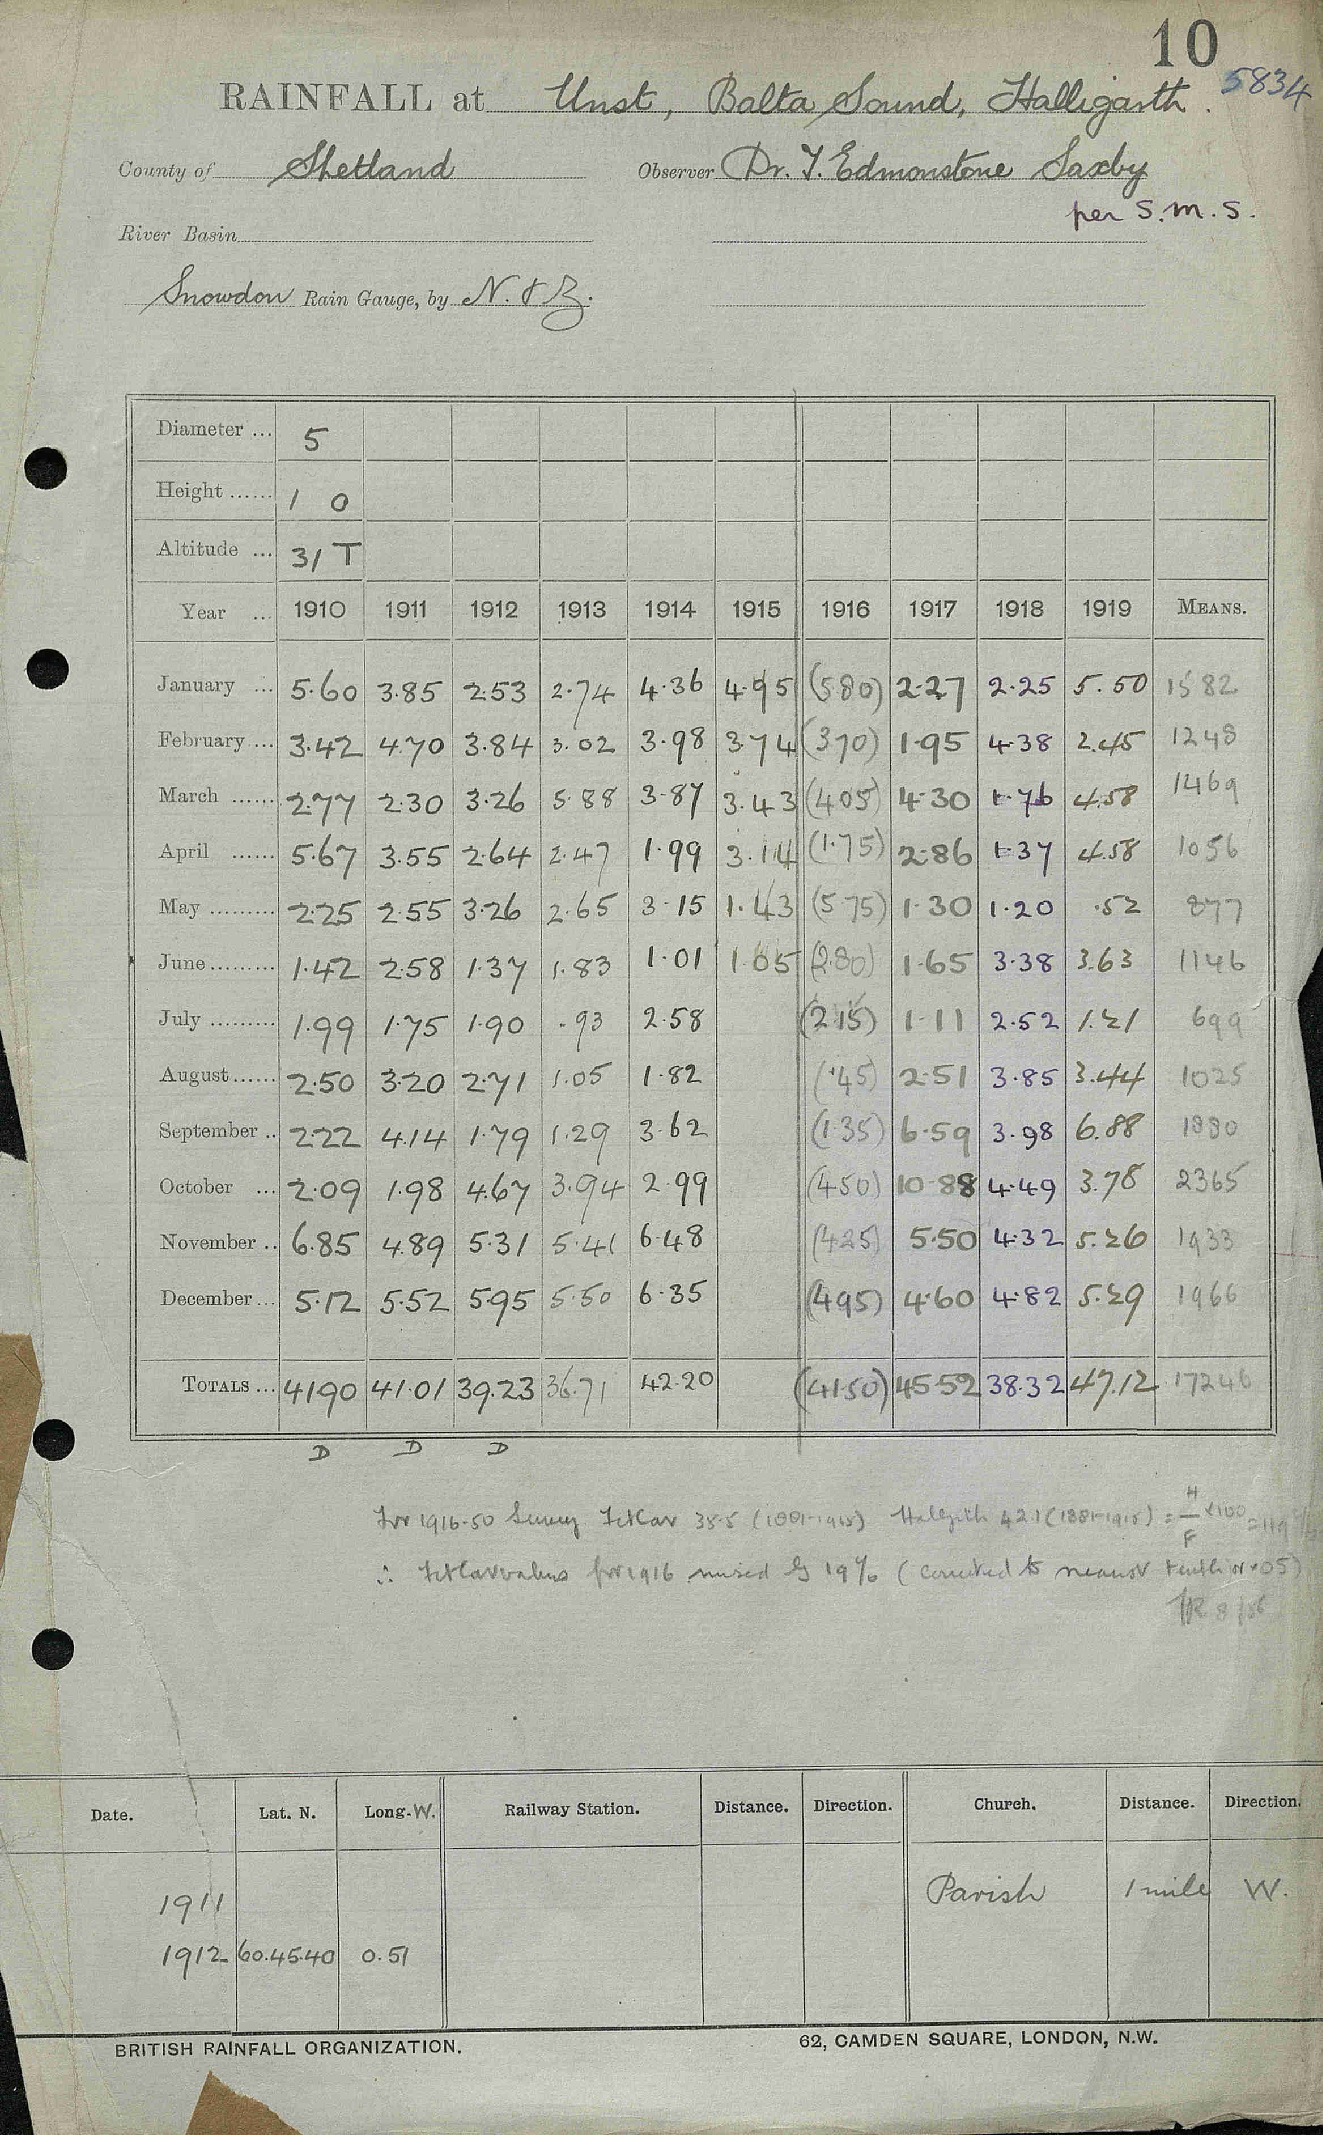 10
RAINFALL at Unst, Balta Sound, Halligarth. 5834
County of Shetland Observer Dr. T. Edmonstone Saxby
per S.M.S.
River Basin
Snowdon Rain Gauge, by N. & Z.
Diameter ... 5
Height ...... 1 0
Altitude ... 31 T
Year ... 1910 1911 1912 1913 1914 1915 1916 1917 1918 1919 MEANS.
January ... 5.60 3.85 2.53 2.74 4.36 4.95 (5.80) 2.27 2.25 5.50 1582
February ... 3.42 4.70 3.84 3.02 3.98 3.74 (3.70) 1.95 4.38 2.45 1248
March ...... 2.77 2.30 3.26 5.88 3.87 3.43 (4.05) 4.30 1.76 4.58 1469
April ...... 5.67 3.55 2.64 2.47 1.99 3.14 (1.75) 2.86 1.37 4.58 1056
May ......... 2.25 2.55 3.26 2.65 3.15 1.43 (5.75) 1.30 1.20 .52 877
June ......... 1.42 2.58 1.37 1.83 1.01 1.05 (2.80) 1.65 3.38 3.63 1146
July ......... 1.99 1.75 1.90 .93 2.58 (2.15) 1.11 2.52 1.21 699
August ...... 2.50 3.20 2.71 1.05 1.82 (.45) 2.51 3.85 3.44 1025
September .. 2.22 4.14 1.79 1.29 3.62 (1.35) 6.59 3.98 6.88 1880
October ... 2.09 1.98 4.67 3.94 2.99 (4.50) 10.88 4.49 3.78 2365
November .. 6.85 4.89 5.31 5.41 6.48 (4.25) 5.50 4.32 5.26 1933
December ... 5.12 5.52 5.95 5.50 6.35 (4.95) 4.60 4.82 5.29 1966
TOTALS ... 41.90 41.01 39.23 36.71 42.20 (41.50) 45.52 38.32 47.12 17246
D D D
For 1916-50 Survey Fetlar 35.5 (1881-1915) Halligarth 42.1 (1881-1915) = H/F × 100 = 119
∴ Fetlar values for 1916 raised by 19% (corrected to nearest tenth or .05)
Date. Lat. N. Long. W. Railway Station. Distance. Direction. Church. Distance. Direction.
1911 Parish 1 mile W.
1912 60.45.40 0.51
BRITISH RAINFALL ORGANIZATION. 62, CAMDEN SQUARE, LONDON, N.W.